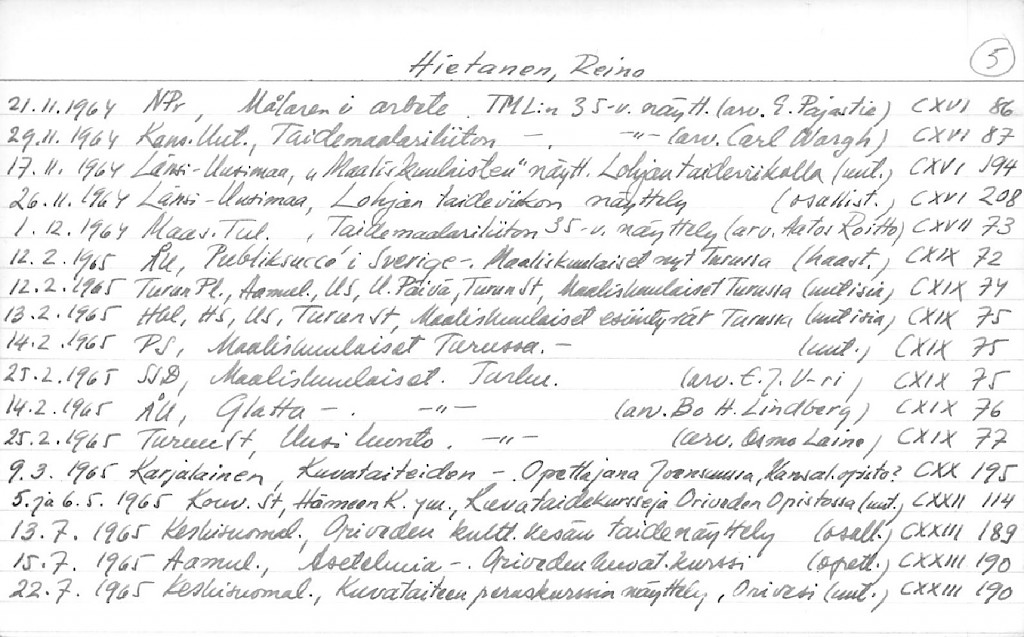 Hietanen, Reino
5
21.11.1964 NPr, Målaren i arbete. TML:n 35-v. näytt. (arv. E. Pajastie) CXVI 86
29.11.1964 Kans.Uut., Taidemaalariliiton -, -"- (arv. Carl Wargh) CXVI 87
17.11.1964 Länsi-Uusimaa, "Maaliskuulaisten" näytt. Lohjan taideviikolla (uut.) CXVI 194
26.11.1964 Länsi-Uusimaa, Lohjan taideviikon näyttely (osallist.) CXVI 208
1.12.1964 Maas.Tul., Taidemaalariliiton 35-v. näyttely (arv. Aatos Roitto) CXVII 73
12.2.1965 ÅU, Publiksuccé i Sverige-. Maaliskuulaiset nyt Turussa (haast.) CXIX 72
12.2.1965 Turun Pl., Aamul., US, U. Päivä, Turun St, Maaliskuulaiset Turussa (uutisia) CXIX 74
13.2.1965 Hbl, HS, US, Turun St, Maaliskuulaiset esiintyvät Turussa (uutisia) CXIX 75
14.2.1965 PS, Maaliskuulaiset Turussa.- (uut.) CXIX 75
25.2.1965 SSD, Maaliskuulaiset. Turku. (arv. E.J. V-ri) CXIX 75
14.2.1965 ÅU, Glatta -. -"- (arv. Bo H. Lindberg) CXIX 76
25.2.1965 Turun St, Uusi luonto. -"- (arv. Osmo Laine) CXIX 77
9.3.1965 Karjalainen, Kuvataiteiden - Opettajana Joensuussa, Kansal.opisto? CXX 195
5. ja 6.5.1965 Kouv.St, Hämeen K. ym., Kuvataidekursseja Oriveden Opistossa (uut.) CXXII 114
13.7.1965 Keskisuomal., Oriveden kultt.kesän taidenäyttely (osall.) CXXIII 189
15.7.1965 Aamul., Asetelmia -. Oriveden kuvat.kurssi (opett.) CXXIII 190
22.7.1965 Keskisuomal., Kuvataiteen peruskurssin näyttely, Orivesi (uut.) CXXIII 190